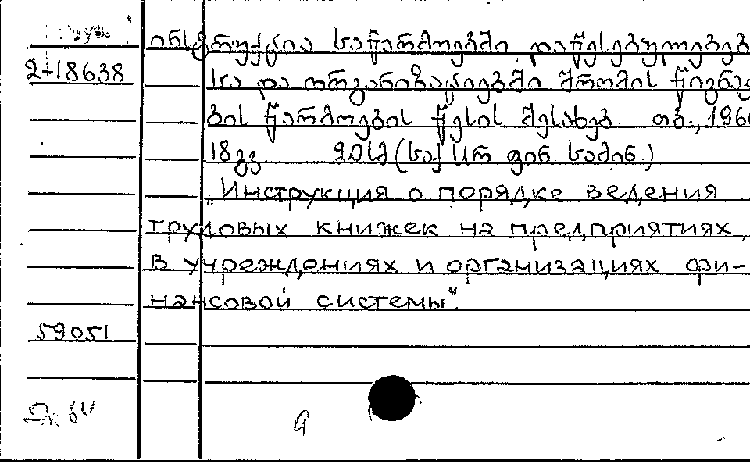 2-18638
ინსტრუქცია საწარმოებში, დაწესებულებებ
სა და ორგანიზაციებში შრომის წიგნაკე
ბის წარმოების წესის შესახებ თბ., 1966
18 გვ. 20 სმ (საქ სსრ ფინ. სამინ.)
„Инструкция о порядке ведения
трудовых книжек на предприятиях,
в учреждениях и организациях фи-
нансовой системы".
59051